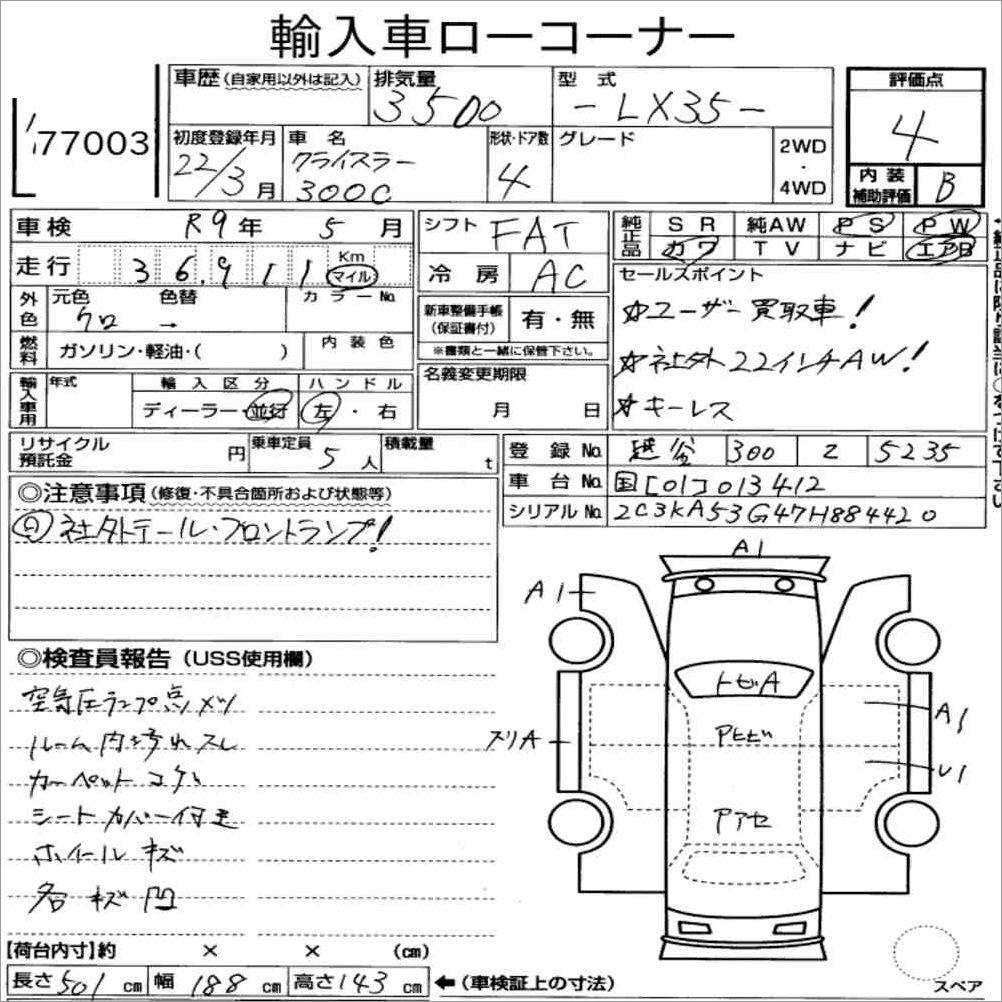 輸入車ローコーナー
77003
車歴(自家用以外は記入) 排気量 3500 型式 -LX35- 評価点 4
初度登録年月 22/3月 車名 クライスラー 300C 形状・ドア数 4 グレード 2WD・4WD 内装補助評価 B
車検 R9年 5月 シフト FAT 純正品 SR 純AW PS PW
走行 36,911 Km マイル 冷房 AC カワ TV ナビ エアB
外色 元色 クロ 色替 → カラーNo. 新車整備手帳(保証書付) 有・無 セールスポイント
☆ユーザー買取車!
燃料 ガソリン・軽油・( ) 内装色 ※書類と一緒に保管下さい。
☆社外22インチAW!
輸入車用 年式 輸入区分 ディーラー・並行 ハンドル 左・右 名義変更期限 月 日
☆キーレス
リサイクル預託金 円 乗車定員 5人 積載量 t 登録No. 越谷 300 5235
車台No. 国[01]013412
シリアルNo. 2C3KA53G47H884420
◎注意事項(修復・不具合箇所および状態等)
社外テール・フロントランプ!
◎検査員報告(USS使用欄)
空気圧ランプ点メツ
ルーム内汚れスレ
カーペットコゲ
シートカバー付
ホイールキズ
各キズ凹
A1
A1
トビA
A1
スリA
アヒビ
U1
アアセ
【荷台内寸】約 × × (cm)
長さ501cm 幅188cm 高さ143cm ←(車検証上の寸法) スペア